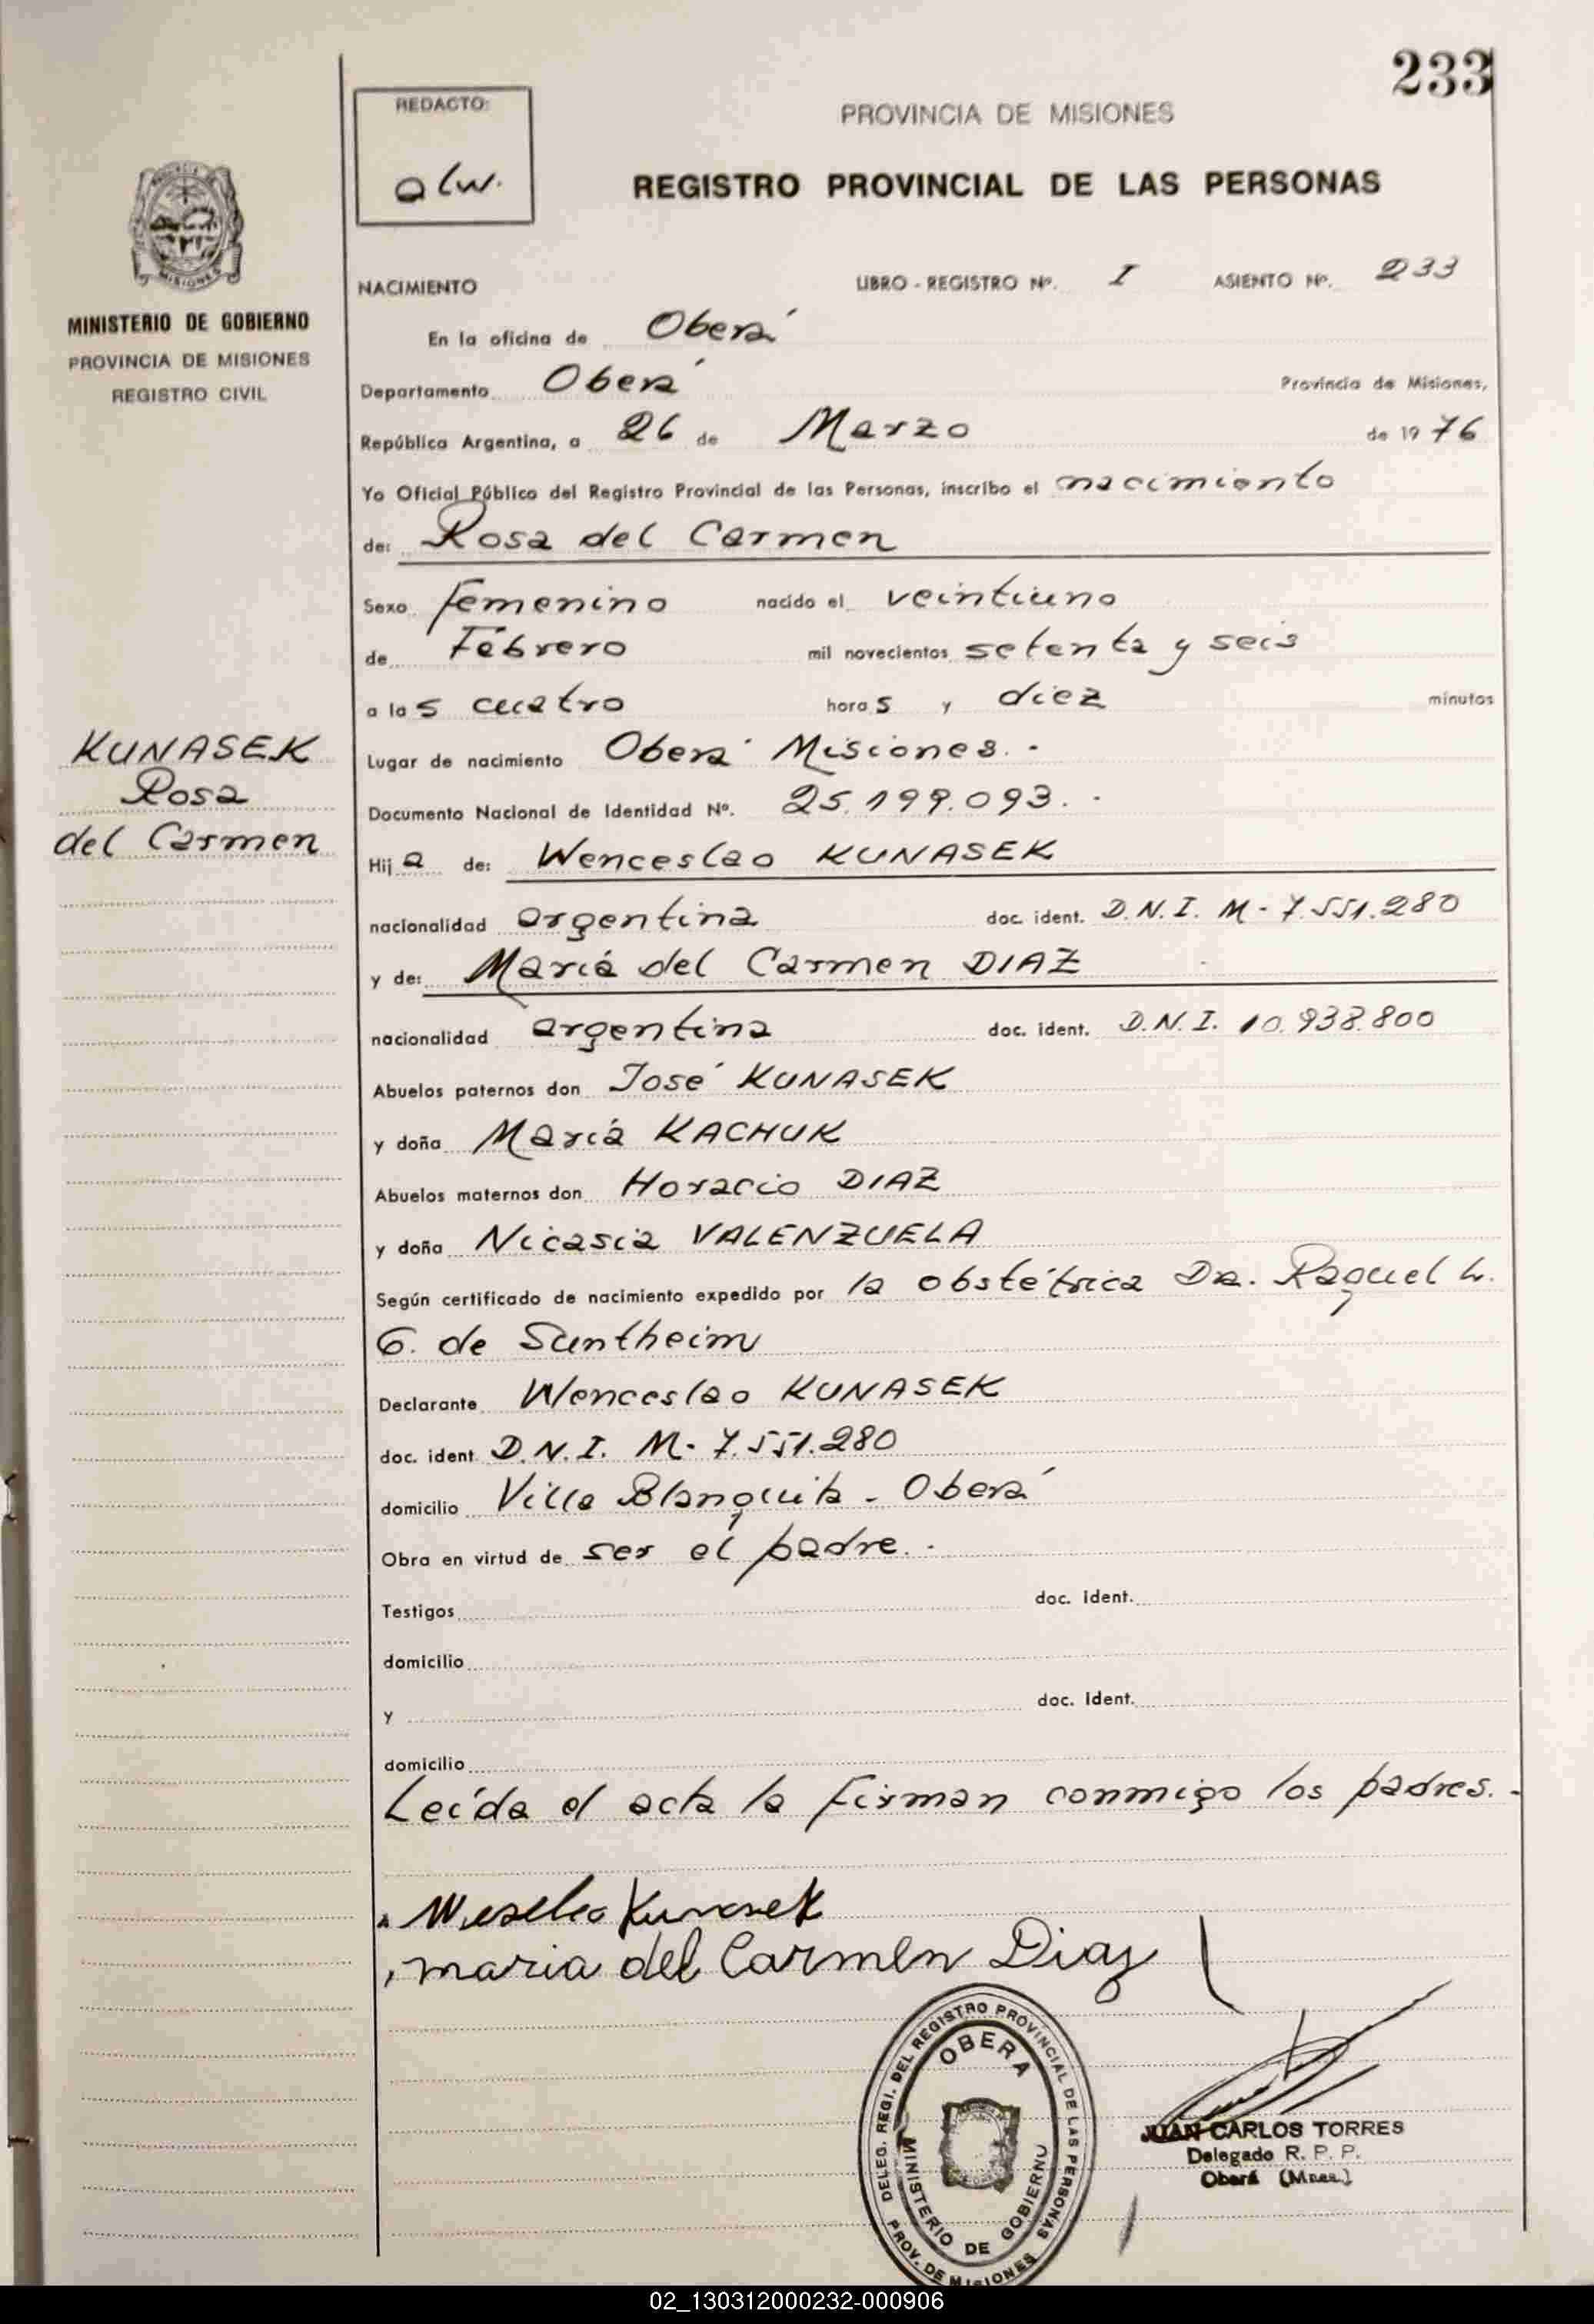 233
REDACTO:
alw.
PROVINCIA DE MISIONES
REGISTRO PROVINCIAL DE LAS PERSONAS
MISIONES
MINISTERIO DE GOBIERNO
PROVINCIA DE MISIONES
REGISTRO CIVIL
NACIMIENTO LIBRO - REGISTRO Nº. I ASIENTO Nº. 233
En la oficina de Oberá
Departamento Oberá Provincia de Misiones,
República Argentina, a 26 de Marzo de 19 76
Yo Oficial Público del Registro Provincial de las Personas, inscribo el nacimiento
de: Rosa del Carmen
Sexo femenino nacido el veintiuno
de Febrero mil novecientos setenta y seis
a las cuatro horas y diez minutos
Lugar de nacimiento Oberá Misiones.-
KUNASEK
Rosa
del Carmen
Documento Nacional de Identidad Nº. 25.199.093.-
Hija de: Wenceslao KUNASEK
nacionalidad argentina doc. ident. D.N.I. M- 7.551.280
y de: María del Carmen DIAZ
nacionalidad argentina doc. ident. D.N.I. 10.938.800
Abuelos paternos don José KUNASEK
y doña María KACHUK
Abuelos maternos don Horacio DIAZ
y doña Nicasia VALENZUELA
Según certificado de nacimiento expedido por la obstétrica Da. Raquel L.
G. de Suntheim
Declarante Wenceslao KUNASEK
doc. ident. D.N.I. M- 7.551.280
domicilio Villa Blanquita - Oberá
Obra en virtud de ser el padre.-
Testigos doc. ident.
domicilio
y doc. ident.
domicilio
Leída el acta la firman conmigo los padres.-
Kunasek
maria del Carmen Diaz
DELEG. REGI. DEL REGISTRO PROVINCIAL DE LAS PERSONAS
OBERA
MINISTERIO DE GOBIERNO
PROV. DE MISIONES
JUAN CARLOS TORRES
Delegado R. P. P.
Oberá (Mnes.)
02_130312000232-000906